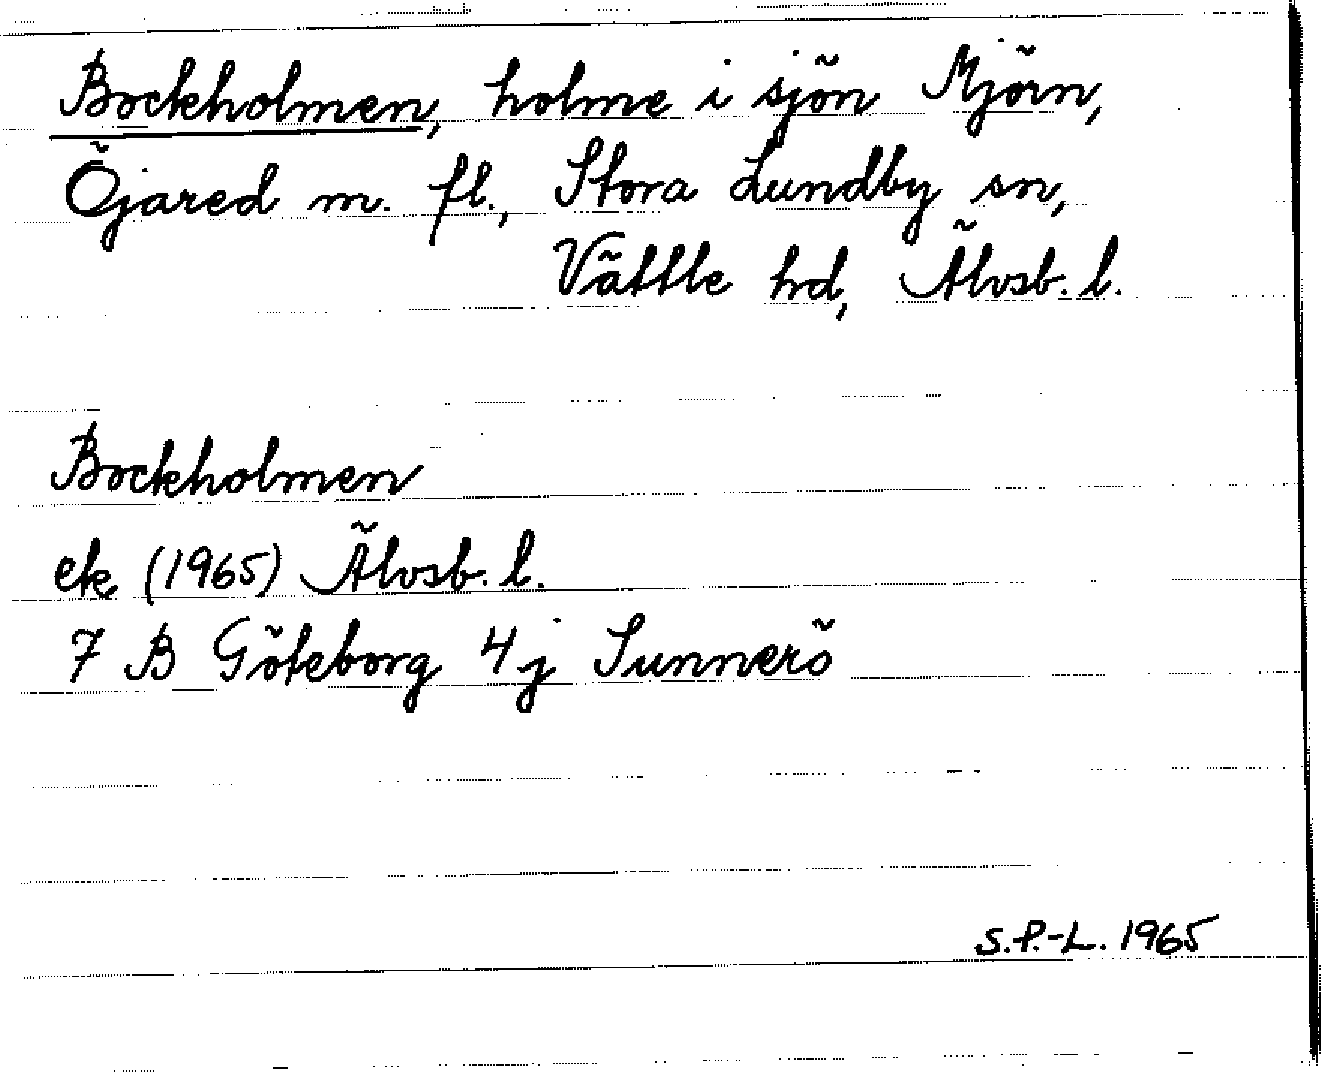 Bockholmen, holme i sjön Mjörn,
Öjared m. fl., Stora Lundby sn,
Vättle hd, Älvsb. l.
Bockholmen
ek (1965) Älvsb. l.
7 B Göteborg 4 j Sunnerö
S.P.-L. 1965